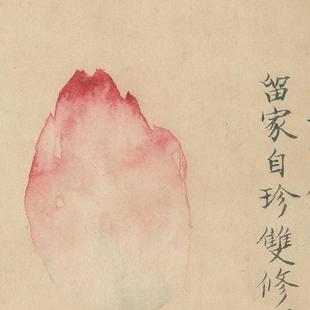 留家自珍雙修